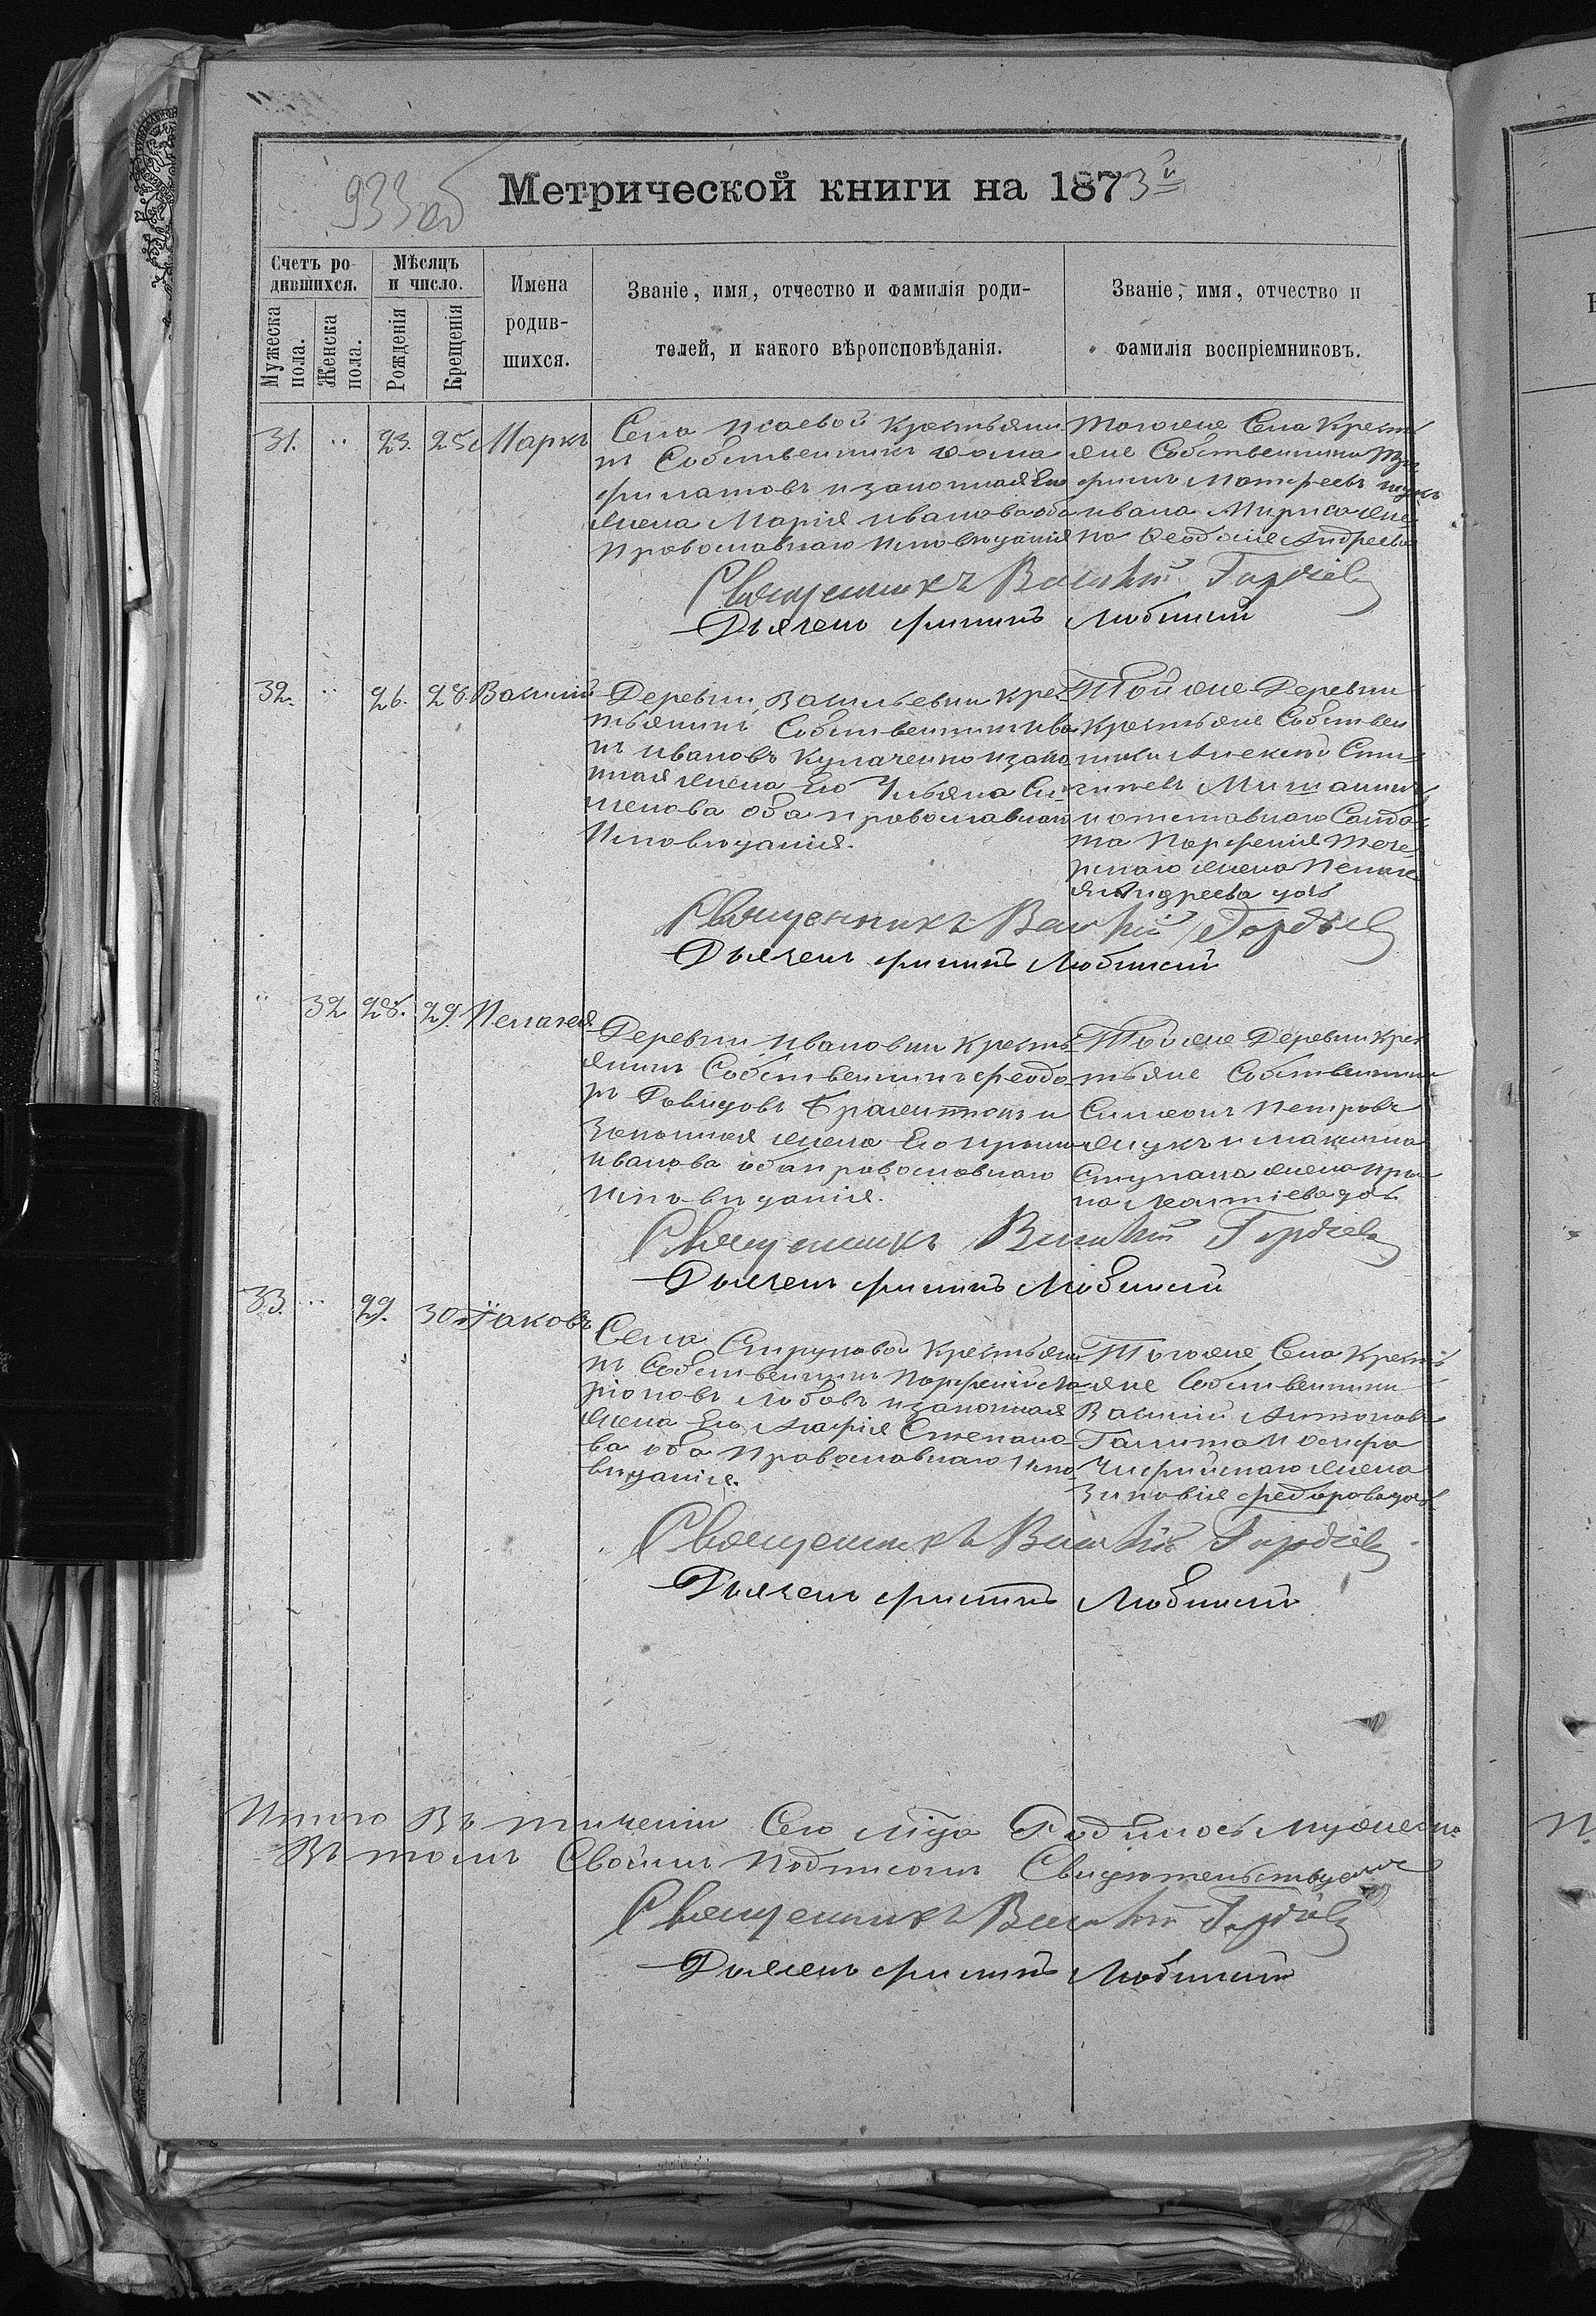 933 об
Метрической книги на 1873й
Счетъ ро-
дившихся.
Мужеска пола.
Женска пола.
Мѣсяцъ
и число.
Рожденія
Крещенія
Имена
родив-
шихся.
Званіе, имя, отчество и фамилія роди-
телей, и какого вѣроисповѣданія.
Званіе, имя, отчество и
фамилія воспріемниковъ.
31. " 23. 25 Маркъ
Села Исаевой Крестьяни
нъ Собственникъ Фома
Филатовъ и законная Его
жена Марія Иванова оба
Православнаго Исповѣданія
Тогоже Села Кресть
яне Собственники
Матфеевъ
Ивана жена
Феодосія Андреева
Священникъ Василій Гордіев
Дьячекъ Филипъ Любинскій
32. " 26. 28. Василій
Деревни Васильевки Крес
тьянинъ Собственникъ Ива
нъ Ивановъ Кулаченко и зако
нная жена Его Ульяна Си
менова оба православнаго
Исповѣданія.
Тойже Деревни
Крестьяне Собствен
ники Алексѣй
и отставнаго Солда
та Порфирія
жена Пелаге
я Андреева дочь
Священникъ Василій Гордіев
Дьячекъ Филипъ Любинскій
" 32 28. 29. Пелагея
Деревни Ивановки Кресть
янинъ Собственникъ Феодо
ръ Давидовъ и
Законная жена Его Ирина
Иванова оба православнаго
Исповѣданія.
Тойже Деревни Крес
тьяне Собственники
Симеонъ Петровъ
и Максима
Ступака жена Ири
на дочь
Священникъ Василій Гордіев
Дьячекъ Филипъ Любинскій
33. " 29. 30 Іаковъ
Села Струковой Крестьяни
нъ Собственникъ Порфирій Ла
ріоновъ и законная
жена Его Агафія Степано
ва оба Православнаго Испо
вѣданія.
Тогоже Села Кресть
яне Собственники
Василій Антоновъ
Осифа
жена
Зиновія Федорова дочь
Священникъ Василій Гордіев
Дьячекъ Филипъ Любинскій
Итого Въ теченіи Сего мѣца Родилось мужеска
Въ томъ Своимъ Подписомъ Свидѣтельствуемъ
Священникъ Василій Гордіев
Дьячекъ Филипъ Любинскій